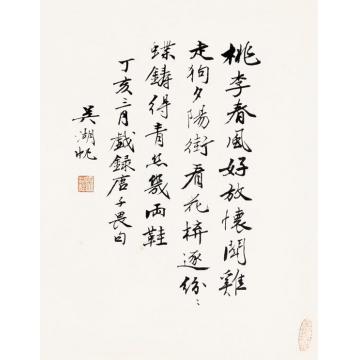 桃李春風好放懷聞雞
走狗夕陽街看花梓逐紛〻
蝶鑄得青絲幾兩鞋
丁亥三月戲錄唐子畏句
吳湖帆